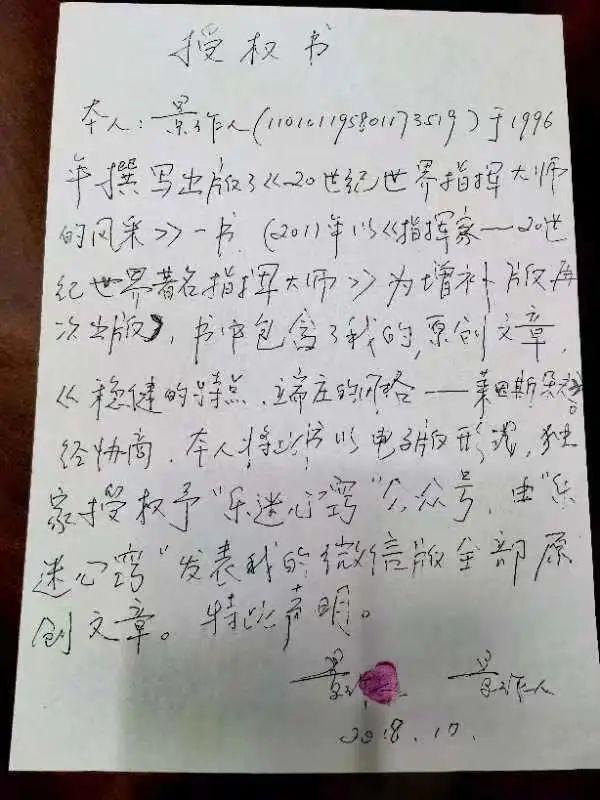 授权书
本人：景作人(110101195801173519)于1996
年撰写出版了《20世纪世界指挥大师
的风采》一书.(2011年以《指挥家——20世
纪世界著名指挥大师》为增补版再
次出版),书中包含了我的原创文章,
《稳健的特点、端庄的风格——莱因斯朵夫》。
经协商,本人将此书以电子版形式,独
家授权予"乐迷心窍"公众号,由"乐
迷心窍"发表我的微信版全部原
创文章。特此声明。
景作人 景作人
2018.10.